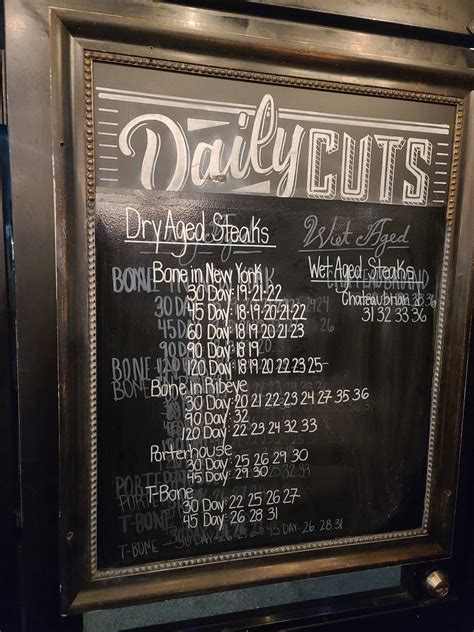 Daily CUTS
Dry Aged Steaks
Bone in New York
30 Day: 19·21·22
45 Day: 18·19·20·21·22
60 Day: 18 19 20 21 23
90 Day: 18 19
120 Day: 18 19 20 22 23 25
Bone in Ribeye
30 Day: 20 21 22 23 24 27 35 36
90 Day: 32
120 Day: 22 23 24 32 33
Porterhouse
30 Day: 25 26 29 30
45 Day: 29 30
T-Bone
30 Day: 22 25 26 27
45 Day: 26 28 31
T-BONE 45 DAY: 26. 28. 31
Wet Aged
Wet Aged Steaks
Chateaubrian
31 32 33 36